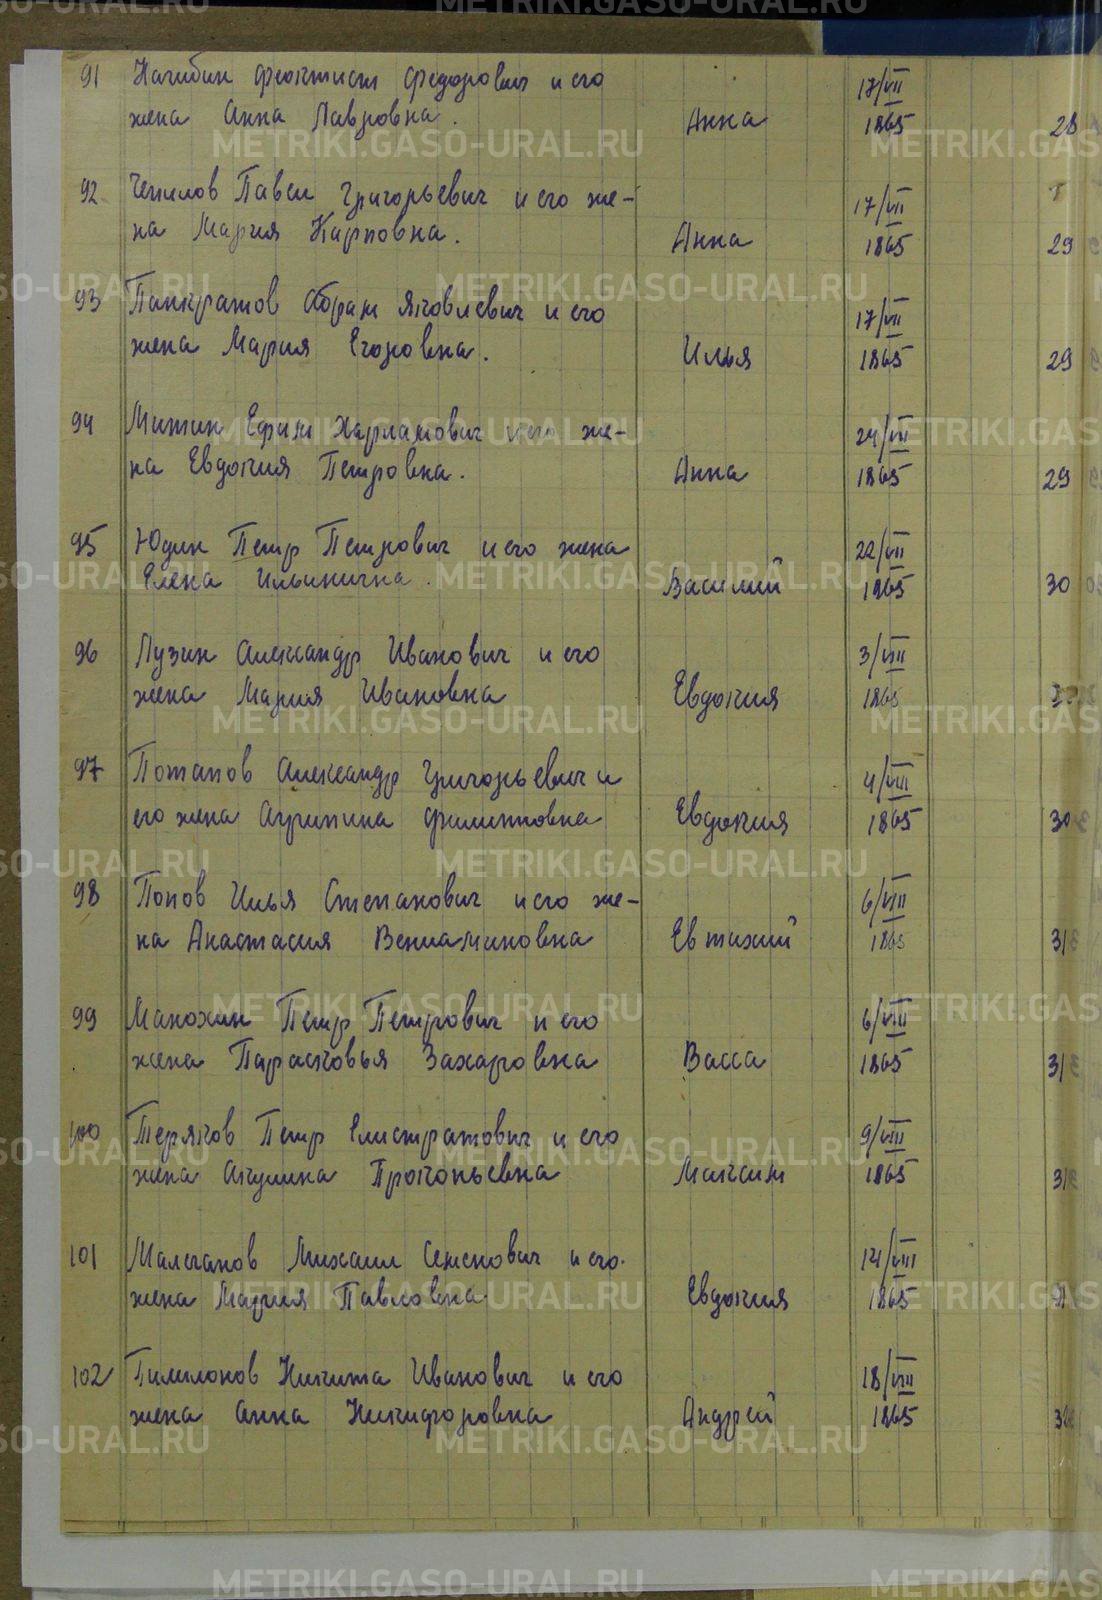 91 Нагибин Феоктист Федорович и его 17/VII
жена Анна Лавровна. Анна 1865 28
92 Чепилов Павел Григорьевич и его же- 17/VII
на Мария Карповна. Анна 1865 29
93 Панкратов Абрам Яковлевич и его 17/VII
жена Мария Егоровна. Илья 1865 29
94 Митин Ефим Харламович и его же- 24/VII
на Евдокия Петровна. Анна 1865 29
95 Юдин Петр Петрович и его жена 22/VII
Елена Ильинична. Василий 1865 30
96 Лузин Александр Иванович и его 3/VIII
жена Мария Ивановна Евдокия 1865
97 Потапов Александр Григорьевич и 4/VIII
его жена Агрипина Филипповна Евдокия 1865 30
98 Попов Илья Степанович и его же- 6/VIII
на Анастасия Вениаминовна Евтихий 1865 31
99 Манохин Петр Петрович и его 6/VIII
жена Парасковья Захаровна Васса 1865 31
100 Теряков Петр Елистратович и его 9/VIII
жена Акулина Прокопьевна Максим 1865 31
101 Малганов Михаил Семенович и его 14/VIII
жена Мария Павловна Евдокия 1865
102 Никита Иванович и его 18/VIII
жена Анна Никифоровна Андрей 1865
METRIKI.GASO-URAL.RU